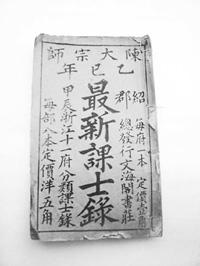 陳大宗師
乙巳年
紹郡
最新課士錄
每府一本 定價壹角
總發行文海閣書莊
甲辰新江十一府分類課士錄
每部八本定價洋五角